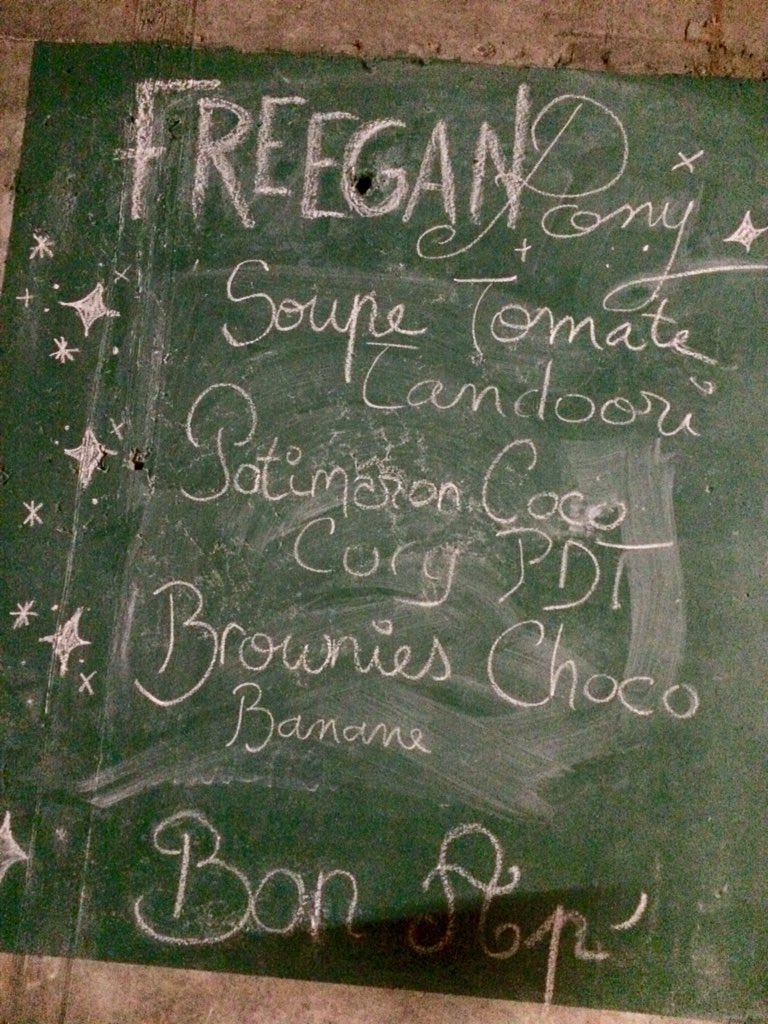 FREEGAN Pony
Soupe Tomate
Tandoori
Potimaron Coco
Cury PDT
Brownies Choco
Banane
Bon Ap'